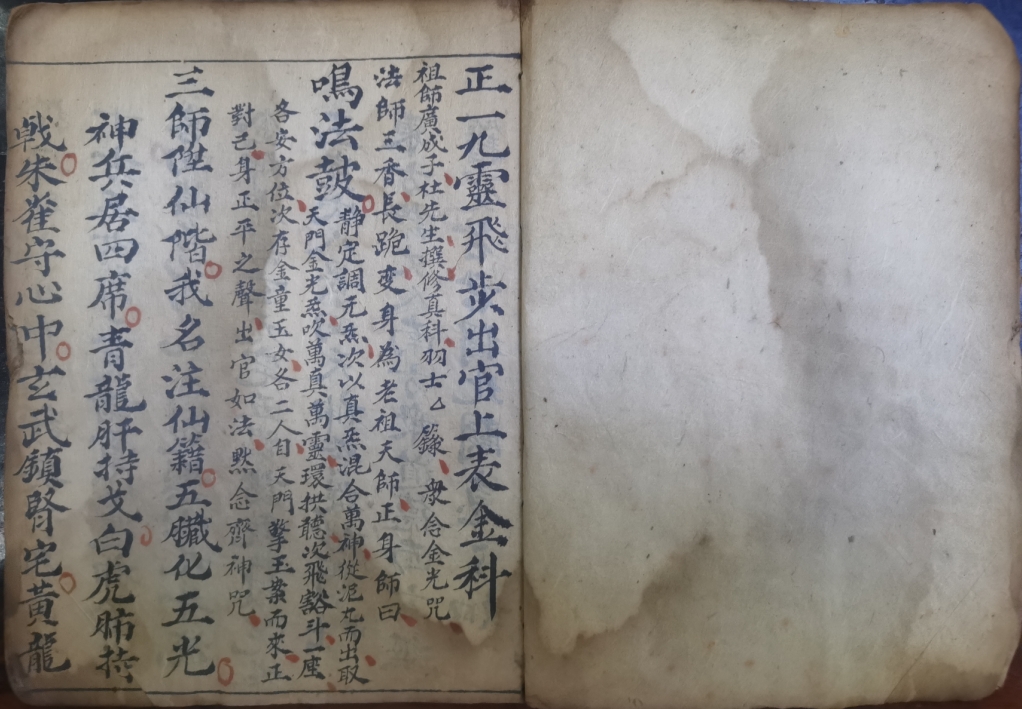 正一九靈飛步出官上表金科
祖師廣成子杜先生撰修真科羽士乙籙 衆念金光咒
法師三香長跪变身為老祖天師正身師曰
鳴法鼓
静定調元炁次以真炁混合萬神從泥丸而出取
天門金光炁吹萬真萬靈環拱聽次飛豁斗一座
各安方位次存金童玉女各二人自天門擎玉案而來正
對己身正平之聲出官如法黙念齊神咒
三師陞仙階我名注仙籍五臟化五光
神兵居四席青龍肝持戈白虎肺持
戟朱雀守心中玄武鎮腎宅黃龍